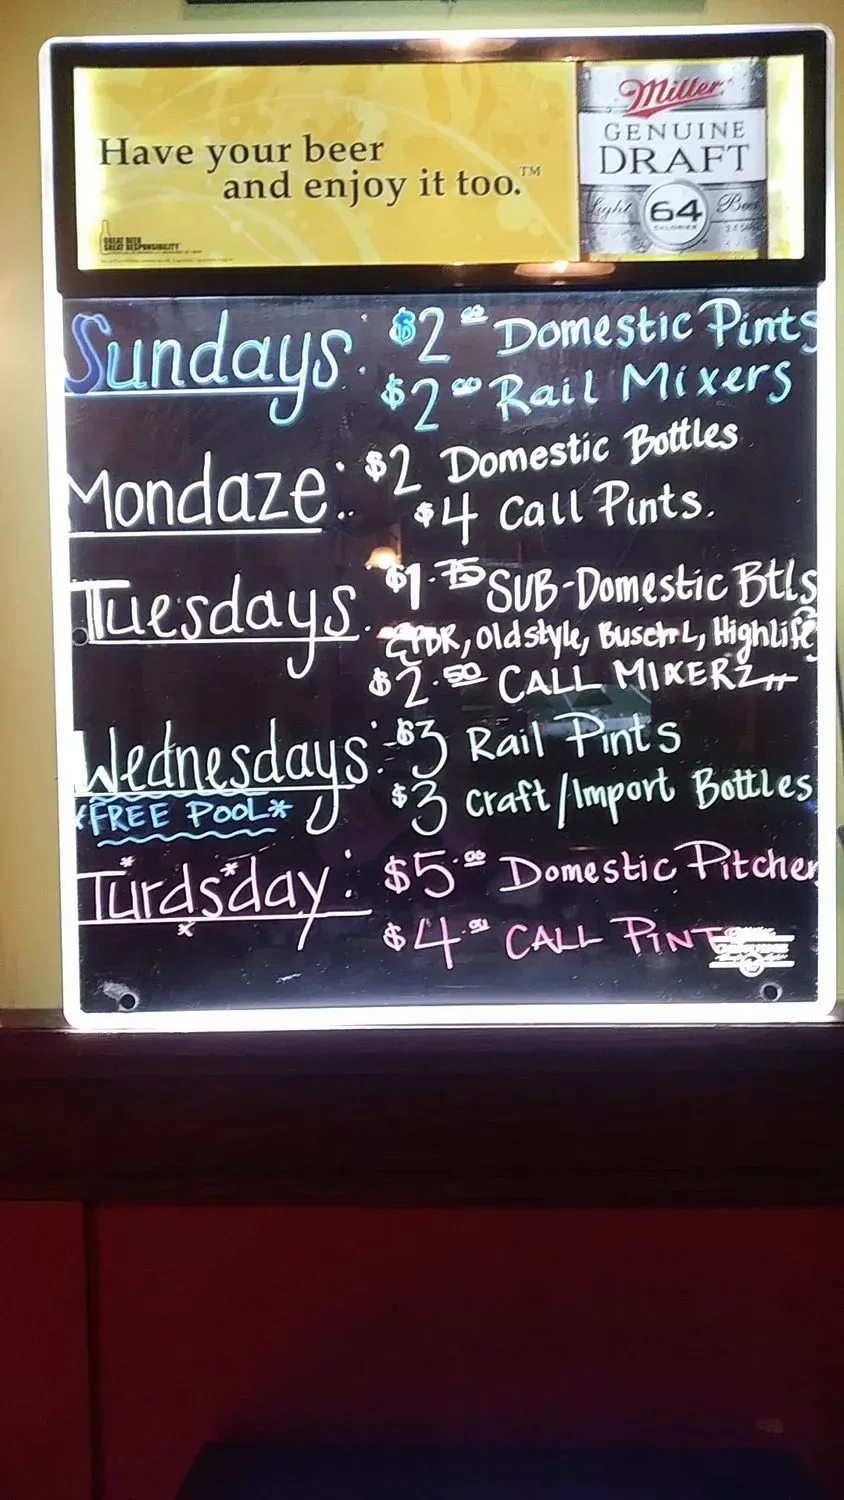 Have your beer
and enjoy it too.™
GREAT BEER
GREAT RESPONSIBILITY
Miller
GENUINE
DRAFT
Light 64 Beer
CALORIES
Sundays: $2.00 Domestic Pints
$2.00 Rail Mixers
Mondaze: $2 Domestic Bottles
$4 Call Pints.
Tuesdays: $1.75 SUB-Domestic Btls
PBR, Old style, Busch L, Highlife
$2.50 CALL MIXERZ
Wednesdays: $3 Rail Pints
*FREE POOL* $3 Craft/Import Bottles
Turdsday: $5.00 Domestic Pitcher
$4.00 CALL PINT